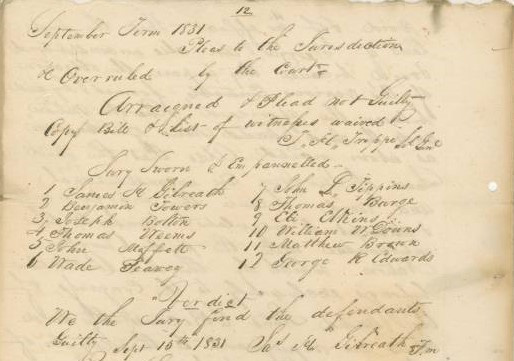 12
September Term 1831
Pleas to the Jurisdiction
& Overruled by the Court
Arraigned & Plead not Guilty
Copy Bill & List of witnesses waived
T. H. Trippe Sol Gnl
Jury Sworn & Empannelled
1 James H Gilreath 7 John D. Tippins
2 Benjamin Towers 8 Thomas Barge
3 Joseph Bolton 9 Eli Elkins
4 Thomas Weems 10 William W Downs
5 John Moffett 11 Matthew Brown
6 Wade Peavey 12 George K Edwards
Verdict
We the Jury find the defendants
Guilty Sept 15th 1831 Jas H Gilreath F.m